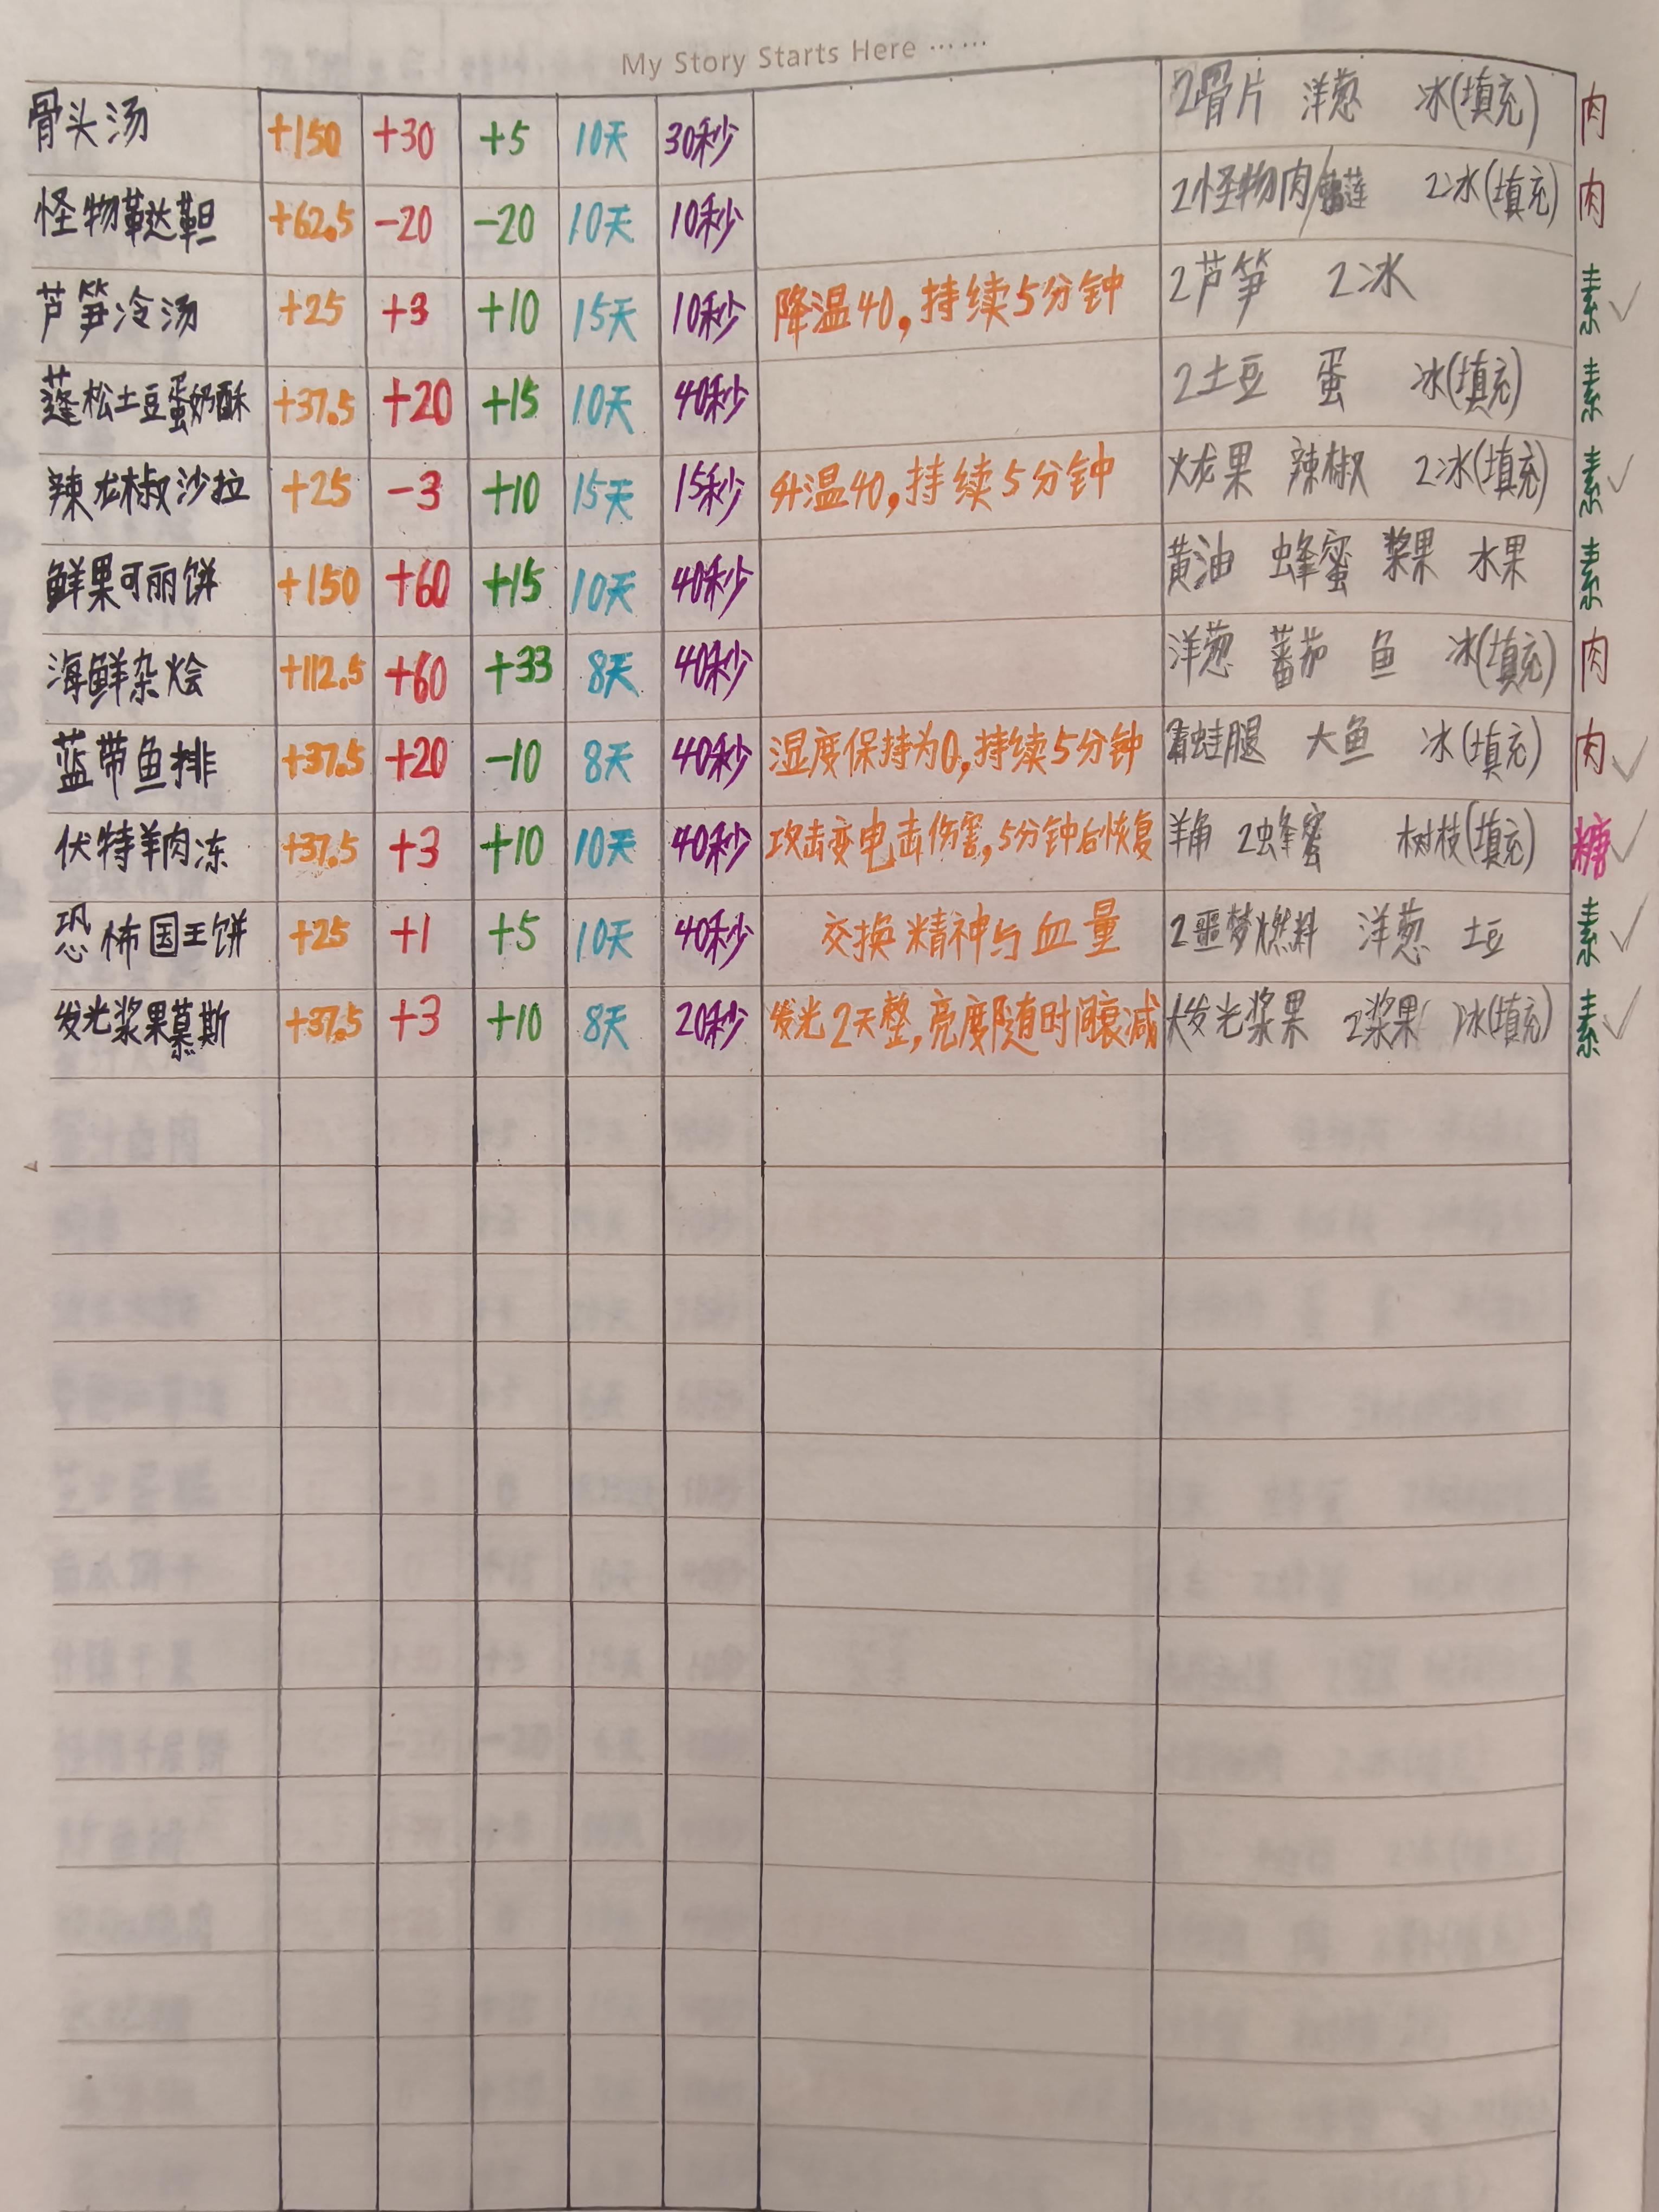 My Story Starts Here ……
骨头汤 +150 +30 +5 10天 30秒 2骨片 洋葱 冰(填充) 肉
怪物鞑靼 +62.5 -20 -20 10天 10秒 2怪物肉/ 2冰(填充) 肉
芦笋冷汤 +25 +3 +10 15天 10秒 降温40,持续5分钟 2芦笋 2冰 素✓
蓬松土豆蛋奶酥 +37.5 +20 +15 10天 40秒 2土豆 蛋 冰(填充) 素
辣龙椒沙拉 +25 -3 +10 15天 15秒 升温40,持续5分钟 火龙果 辣椒 2冰(填充) 素✓
鲜果可丽饼 +150 +60 +15 10天 40秒 黄油 蜂蜜 浆果 水果 素
海鲜杂烩 +112.5 +60 +33 8天 40秒 洋葱 蕃茄 鱼 冰(填充) 肉
蓝带鱼排 +37.5 +20 -10 8天 40秒 湿度保持为0,持续5分钟 青蛙腿 大鱼 冰(填充) 肉✓
伏特羊肉冻 +37.5 +3 +10 10天 40秒 攻击变电击伤害,5分钟后恢复 羊角 2蜂蜜 树枝(填充) 糖✓
恐怖国王饼 +25 +1 +5 10天 40秒 交换精神与血量 2噩梦燃料 洋葱 土豆 素✓
发光浆果慕斯 +37.5 +3 +10 8天 20秒 发光2天整,亮度随时间衰减 大发光浆果 2浆果 冰(填充) 素✓